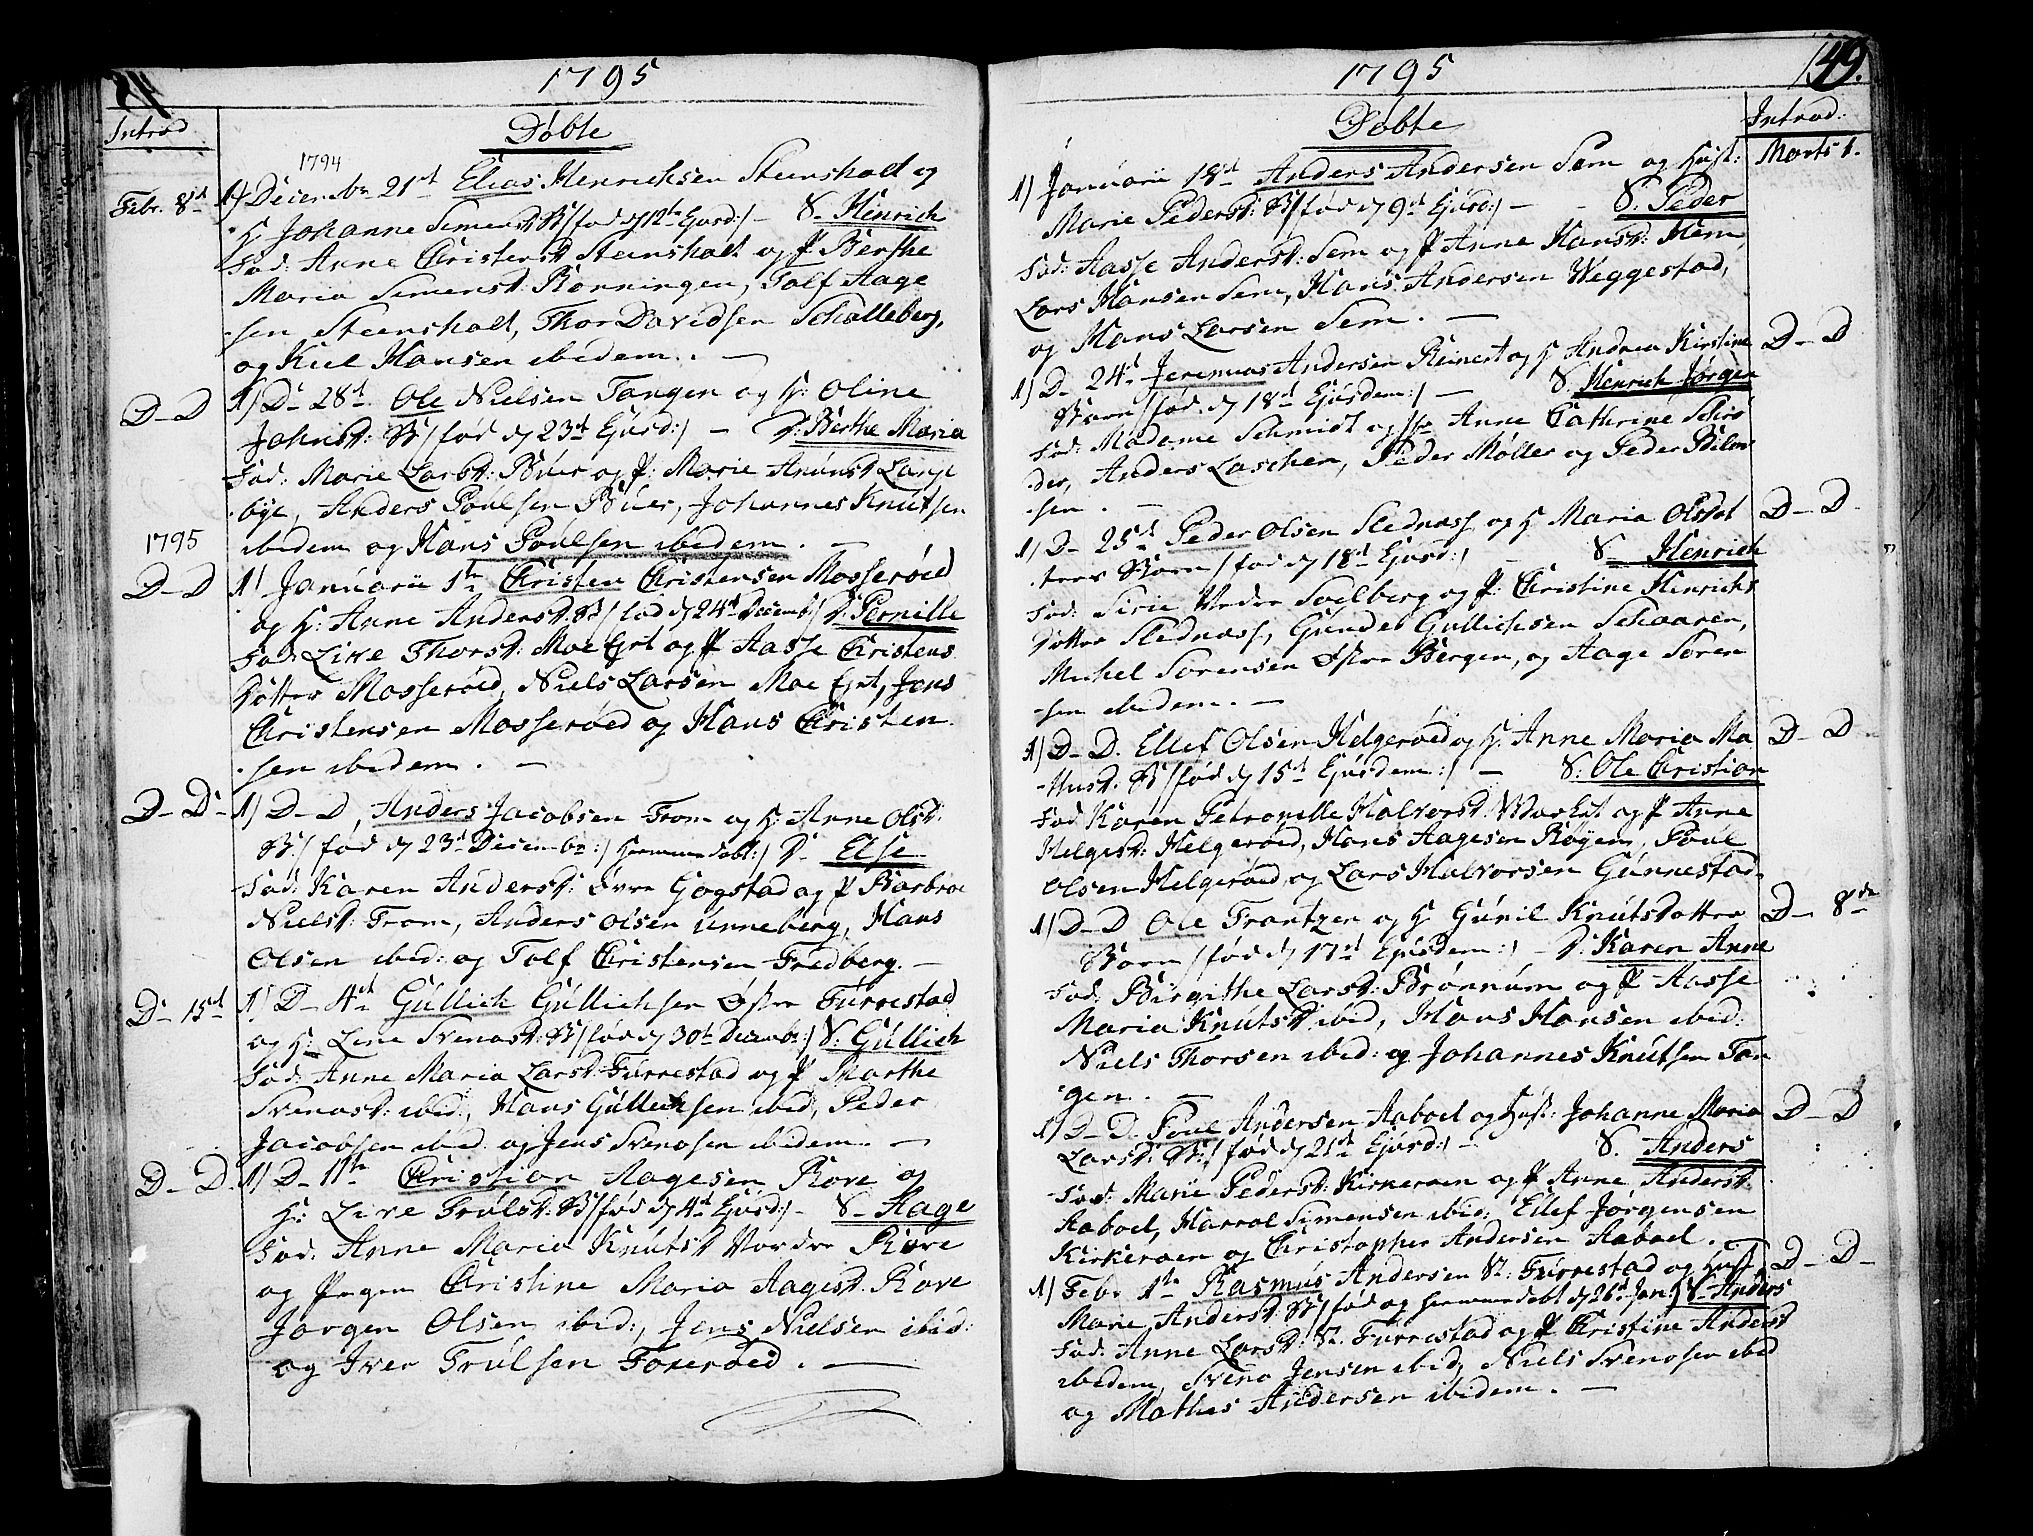 1795
Introd
Døbte
1794
Febr. 8d 1) Decembr 21st Elias Henrichsen Steensholt og
H: Johanne Simensd: B/ fød d 12te Ejusd:/ - S. Henrich
Fad: Anne Christensd Steensholt og P Berthe
Maria Simensd: Rønningen, Tolf Aage
sen Steensholt, Thor Davidsen Schalleberg,
og Kiel Hansen ibidem. -
D-D 1) D- 28d Ole Nielsen Tangen og H: Oline
Johnsd: B/ fød d 23d Ejusd:/ - D: Berthe Maria
Fad: Marie Larsd: Buer og P: Marie Amunsd Lange
bye, Anders Poulsen Buer, Johannes Knutsen
ibidem og Hans Poulsen ibidem. -
1795
D-D 1) Januarii 1te Christen Christensen Mosserøed
og H: Anne Andersd: B/ fød d 24d Decemb/ D: Pernille
Fad: Live Thorsd: Moe Ejet og P Aasse Christens
Dotter Mosserøed, Niels Larsen Moe Ejet, Jens
Christensen Mosserøed og Hans Christen
sen ibidem. -
D-D- 1) D-D, Anders Jacobsen From og H: Anne Olsd:
B:/ fød d 23d Decembr:/ hiemmedøbt:/ D- Else
Fad: Karen Andersd: Øvre Gogstad og P Barbroe
Nielsd: From, Anders Olsen Unneberg, Hans
Olsen ibid: og Tolf Christensen Fredberg. -
D- 15d 1) D- 4d Gullich Gullichsen Østre Furrestad
og H: Live Svensd: B/ fød d 30te Decemb:/ S: Gullich
Fad: Anne Maria Larsd: Furrestad og P Marthe
Svensd: ibid:, Hans Gullichsen ibid, Peder
Jacobsen ibid. og Jens Svensen ibidem. -
D-D. 1) D- 11te Christian Aagesen Rove og
H: Live Trulsd: B/ fød d 4d Ejusd:/- S- Aage
Fad: Anne Maria Knutsd Nordre Rove
og Pigen Christine Maria Aagesd: Rove
Jørgen Olsen ibid:, Jens Nielsen ibid:
og Iver Trulsen Toxerøed. -
1795
149.
Døbte
Introd:
1) Januarii 18d Anders Andersen Sem og Hust: Marts 1.
Marie Pedersd: B/ fød d 9d Ejusd:/ - - S. Peder
Fad: Aasse Andersd: Sem og P Anne Hansd: Hem,
Lars Hansen Sem, Hans Andersen Weggestad,
og Hans Larsen Sem. -
1) D- 24d Jeremias Andersen Reinert og H Andrea Kirstine D-D
Barn/ fød. d 18d Ejusdem:/ - S. Henrich Jørgen
Fad: Madame Schmidt og Anne Cathrine Schrø
der, Anders Laschen, Peder Møller og Peder
sen. -
1) D- 25d Peder Olsen Slednass og H Maria Olsdot D-D-
ters Barn/ fød d 18d Ejusd:/ S- Henrich
Fad: Sirie Nedre Soelberg og P: Christine Henrichs
Dotter Slednass, Gunder Gullichsen Schaaren,
Michel Sørensen Østre Bergen, og Aage Søren
sen ibidem. -
1) D-D. Ellef Olsen Helgerøed og H. Anne Maria Ma D-D-
thisd. B/ fød d 15d Ejusdem:/ - S: Ole Christian
Fad Karen Petronelle Halvorsd: og P Anne
Helgesd: Helgerøed, Hans Aagesen Røyem, Poul
Olsen Helgerøed, og Lars Halvorsen Gunnestad.
1) D-D Ole Frantzen og H Gunil Knutsdotter D- 8de
Barn/ fød d 17d Ejusdem:/ - D: Karen Anne
Fad: Birgithe Larsd: Brønnum og P Aasse
Maria Knutsd ibid, Hans Hansen ibid:
Niels Thorsen ibid: og Johannes Knutsen Tan
gen. -
1) D-D. Poul Andersen Aaboel og Hust: Johanne Maria D-D
Larsd: B:/ fød d 21d Ejusd:/ - S. Anders
Fad: Marie Pedersd: Kirkerøen og P Anne Andersd:
Aaboel, Harrol Simensen ibid: Ellef Jørgensen
Kirkerøen og Christopher Andersen Aaboel. -
1) Febr 1te Rasmus Andersen V: Furrestad og Hust. D-D-
Marie Andersd: B/ fød og hiemmedøbt d 26d Jan:/ S- Anders
Fad: Anne Larsd: V: Furrestad og P Christine Andersd
ibidem, Svend Jensen ibid, Niels Svensen ibid
og Mathis Andersen ibidem. -